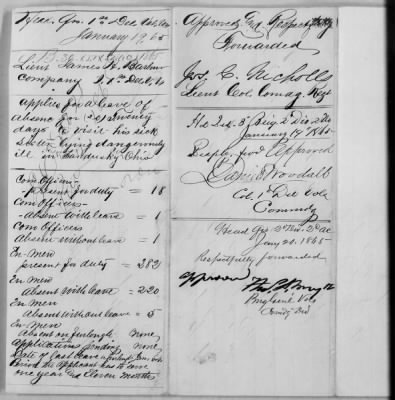 Head Qrs. 1st Del. Vols.
January 1865
Lieut James
Company
Applies for a leave of
absence for twenty
days to visit his sick
sister lying dangerously
ill in Ohio
Com Officers
present for duty = 18
Com Officers
absent with leave = 1
Com Officers
Absent without leave = 1
En-Men
present for duty = 282
En Men
Absent with leave = 220
En Men
Absent without leave = 5
En-Men
Absent on furlough None
Applications pending None
Date of last leave
Period the applicant has to serve
one year and Eleven months
Approved and Respectfully
Forwarded
Jos. C. Nicholls
Lieut Col. Comdg Regt
Hd Qrs. 3d Brig. 2d Div. 2d AC
January 19 1865
Respy. fwd Approved
Daniel Woodall
Col. 1st Del Vols
Commdg
Head Qrs 2d Div. 2d AC
Jany 20. 1865
Respectfully forwarded
approved
Brig Genl Vols
Comdg Div